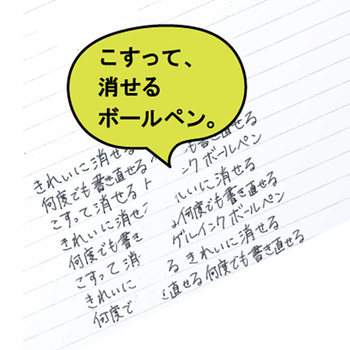 こすって、
消せる
ボールペン。
きれいに消せる
何度でも書き直せる
こすって消せる
きれいに消せ
何度でも書き
こすって消
きれいに
何度で
も書き直せる
ンク ボールペン
いに消せる
何度でも書き直せる
ゲルインク ボールペン
る きれいに消せる
直せる 何度でも書き直せる